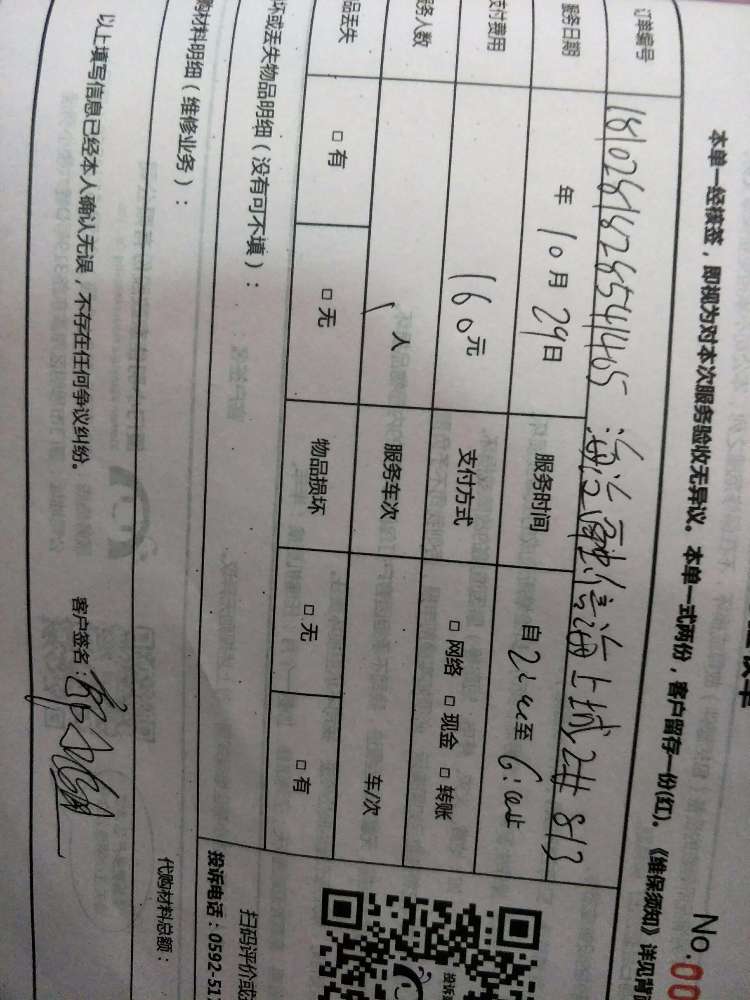 No.00
本单一经核签，即视为对本次服务验收无异议。本单一式两份，客户留存一份(红)。《维保须知》详见背
订单编号 1810281828541465 海沧 融信海上城 2# 813
服务日期 年 10月 29日 服务时间 自 2:00 至 6:00
支付费用 160元 支付方式 □ 网络 □ 现金 □ 转账
服务人数 1 人 服务车次 车/次
品丢失 □ 有 □ 无 物品损坏 □ 无 □ 有
坏或丢失物品明细（没有可不填）：
扫码评价或
投诉电话：0592-51
购材料明细（维修业务）：
代购材料总额：
以上填写信息已经本人确认无误，不存在任何争议纠纷。 客户签名：